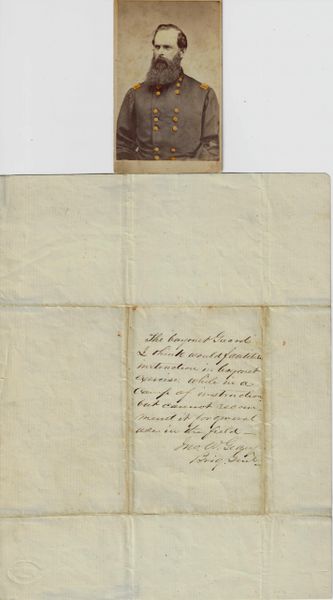 The bayonet Guard
I think would facilitate
instruction in bayonet
exercise while in a
camp of instruction
but cannot recom
mend it for general
use in the field —
Jno W. Geary
Brig Genl